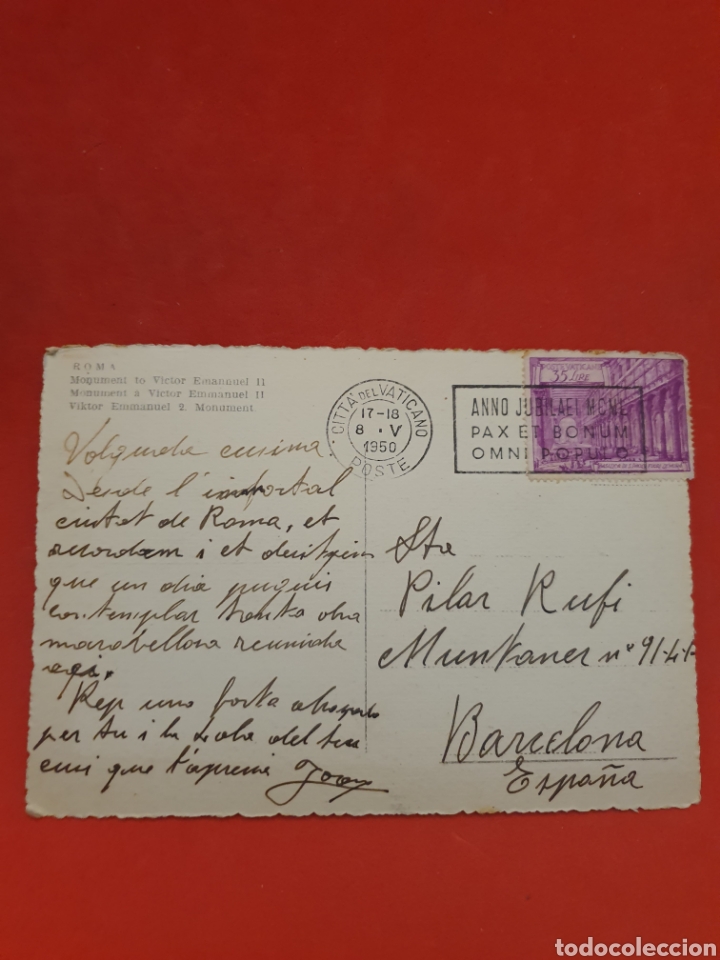 ROMA
Monument to Victor Emanuel II
Monument à Victor Emmanuel II
Viktor Emmanuel 2. Monument
CITTÀ DEL VATICANO
17-18
8 · V
1950
POSTE
ANNO JUBILAEI MCML
PAX ET BONUM
OMNI POPULO
35 LIRE
Volguda cusina
Desde l'inmortal
ciutat de Roma, et
recordem i et desitjem
que un dia puguis
contemplar tanta obra
marabellosa reunida
aqi.
Rep una forta abraçada
per tu i la Lola del teu
cusi que t'aprecia Joan
Sta
Pilar Rufi
Muntaner nº 91-4-1ª
Barcelona
España
todocoleccion